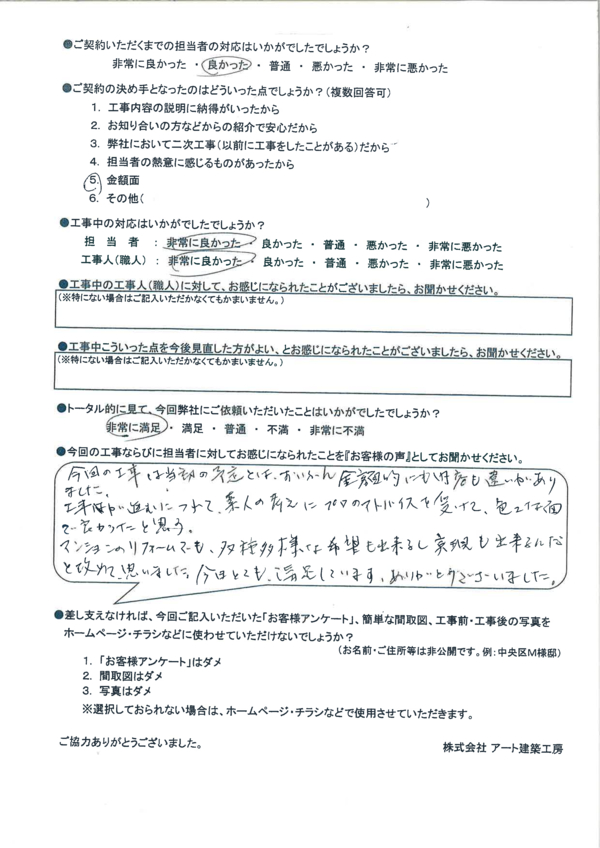 ●ご契約いただくまでの担当者の対応はいかがでしたでしょうか？
非常に良かった ・ 良かった ・ 普通 ・ 悪かった ・ 非常に悪かった
●ご契約の決め手となったのはどういった点でしょうか？（複数回答可）
1. 工事内容の説明に納得がいったから
2. お知り合いの方などからの紹介で安心だから
3. 弊社において二次工事（以前に工事をしたことがある）だから
4. 担当者の熱意に感じるものがあったから
5. 金額面
6. その他（ ）
●工事中の対応はいかがでしたでしょうか？
担 当 者 ： 非常に良かった ・ 良かった ・ 普通 ・ 悪かった ・ 非常に悪かった
工事人（職人）： 非常に良かった ・ 良かった ・ 普通 ・ 悪かった ・ 非常に悪かった
●工事中の工事人（職人）に対して、お感じになられたことがございましたら、お聞かせください。
（※特にない場合はご記入いただかなくてもかまいません。）
●工事中こういった点を今後見直した方がよい、とお感じになられたことがございましたら、お聞かせください。
（※特にない場合はご記入いただかなくてもかまいません。）
●トータル的に見て、今回弊社にご依頼いただいたことはいかがでしたでしょうか？
非常に満足 ・ 満足 ・ 普通 ・ 不満 ・ 非常に不満
●今回の工事ならびに担当者に対してお感じになられたことを『お客様の声』としてお聞かせください。
今回の工事は当初の予定とは、ずいぶん金額的にも内容も違いがあり
ました。
工事が進むにつれて、素人の考えにプロのアドバイスを受けて、色々な面
で良かったと思う。
マンションのリフォームでも、多種多様な希望も出来るし実現も出来るんだ
と改めて思いました。今はとても、満足しています。ありがとうございました。
●差し支えなければ、今回ご記入いただいた「お客様アンケート」、簡単な間取図、工事前・工事後の写真を
ホームページ・チラシなどに使わせていただけないでしょうか？
（お名前・ご住所等は非公開です。例：中央区M様邸）
1. 「お客様アンケート」はダメ
2. 間取図はダメ
3. 写真はダメ
※選択しておられない場合は、ホームページ・チラシなどで使用させていただきます。
ご協力ありがとうございました。
株式会社 アート建築工房